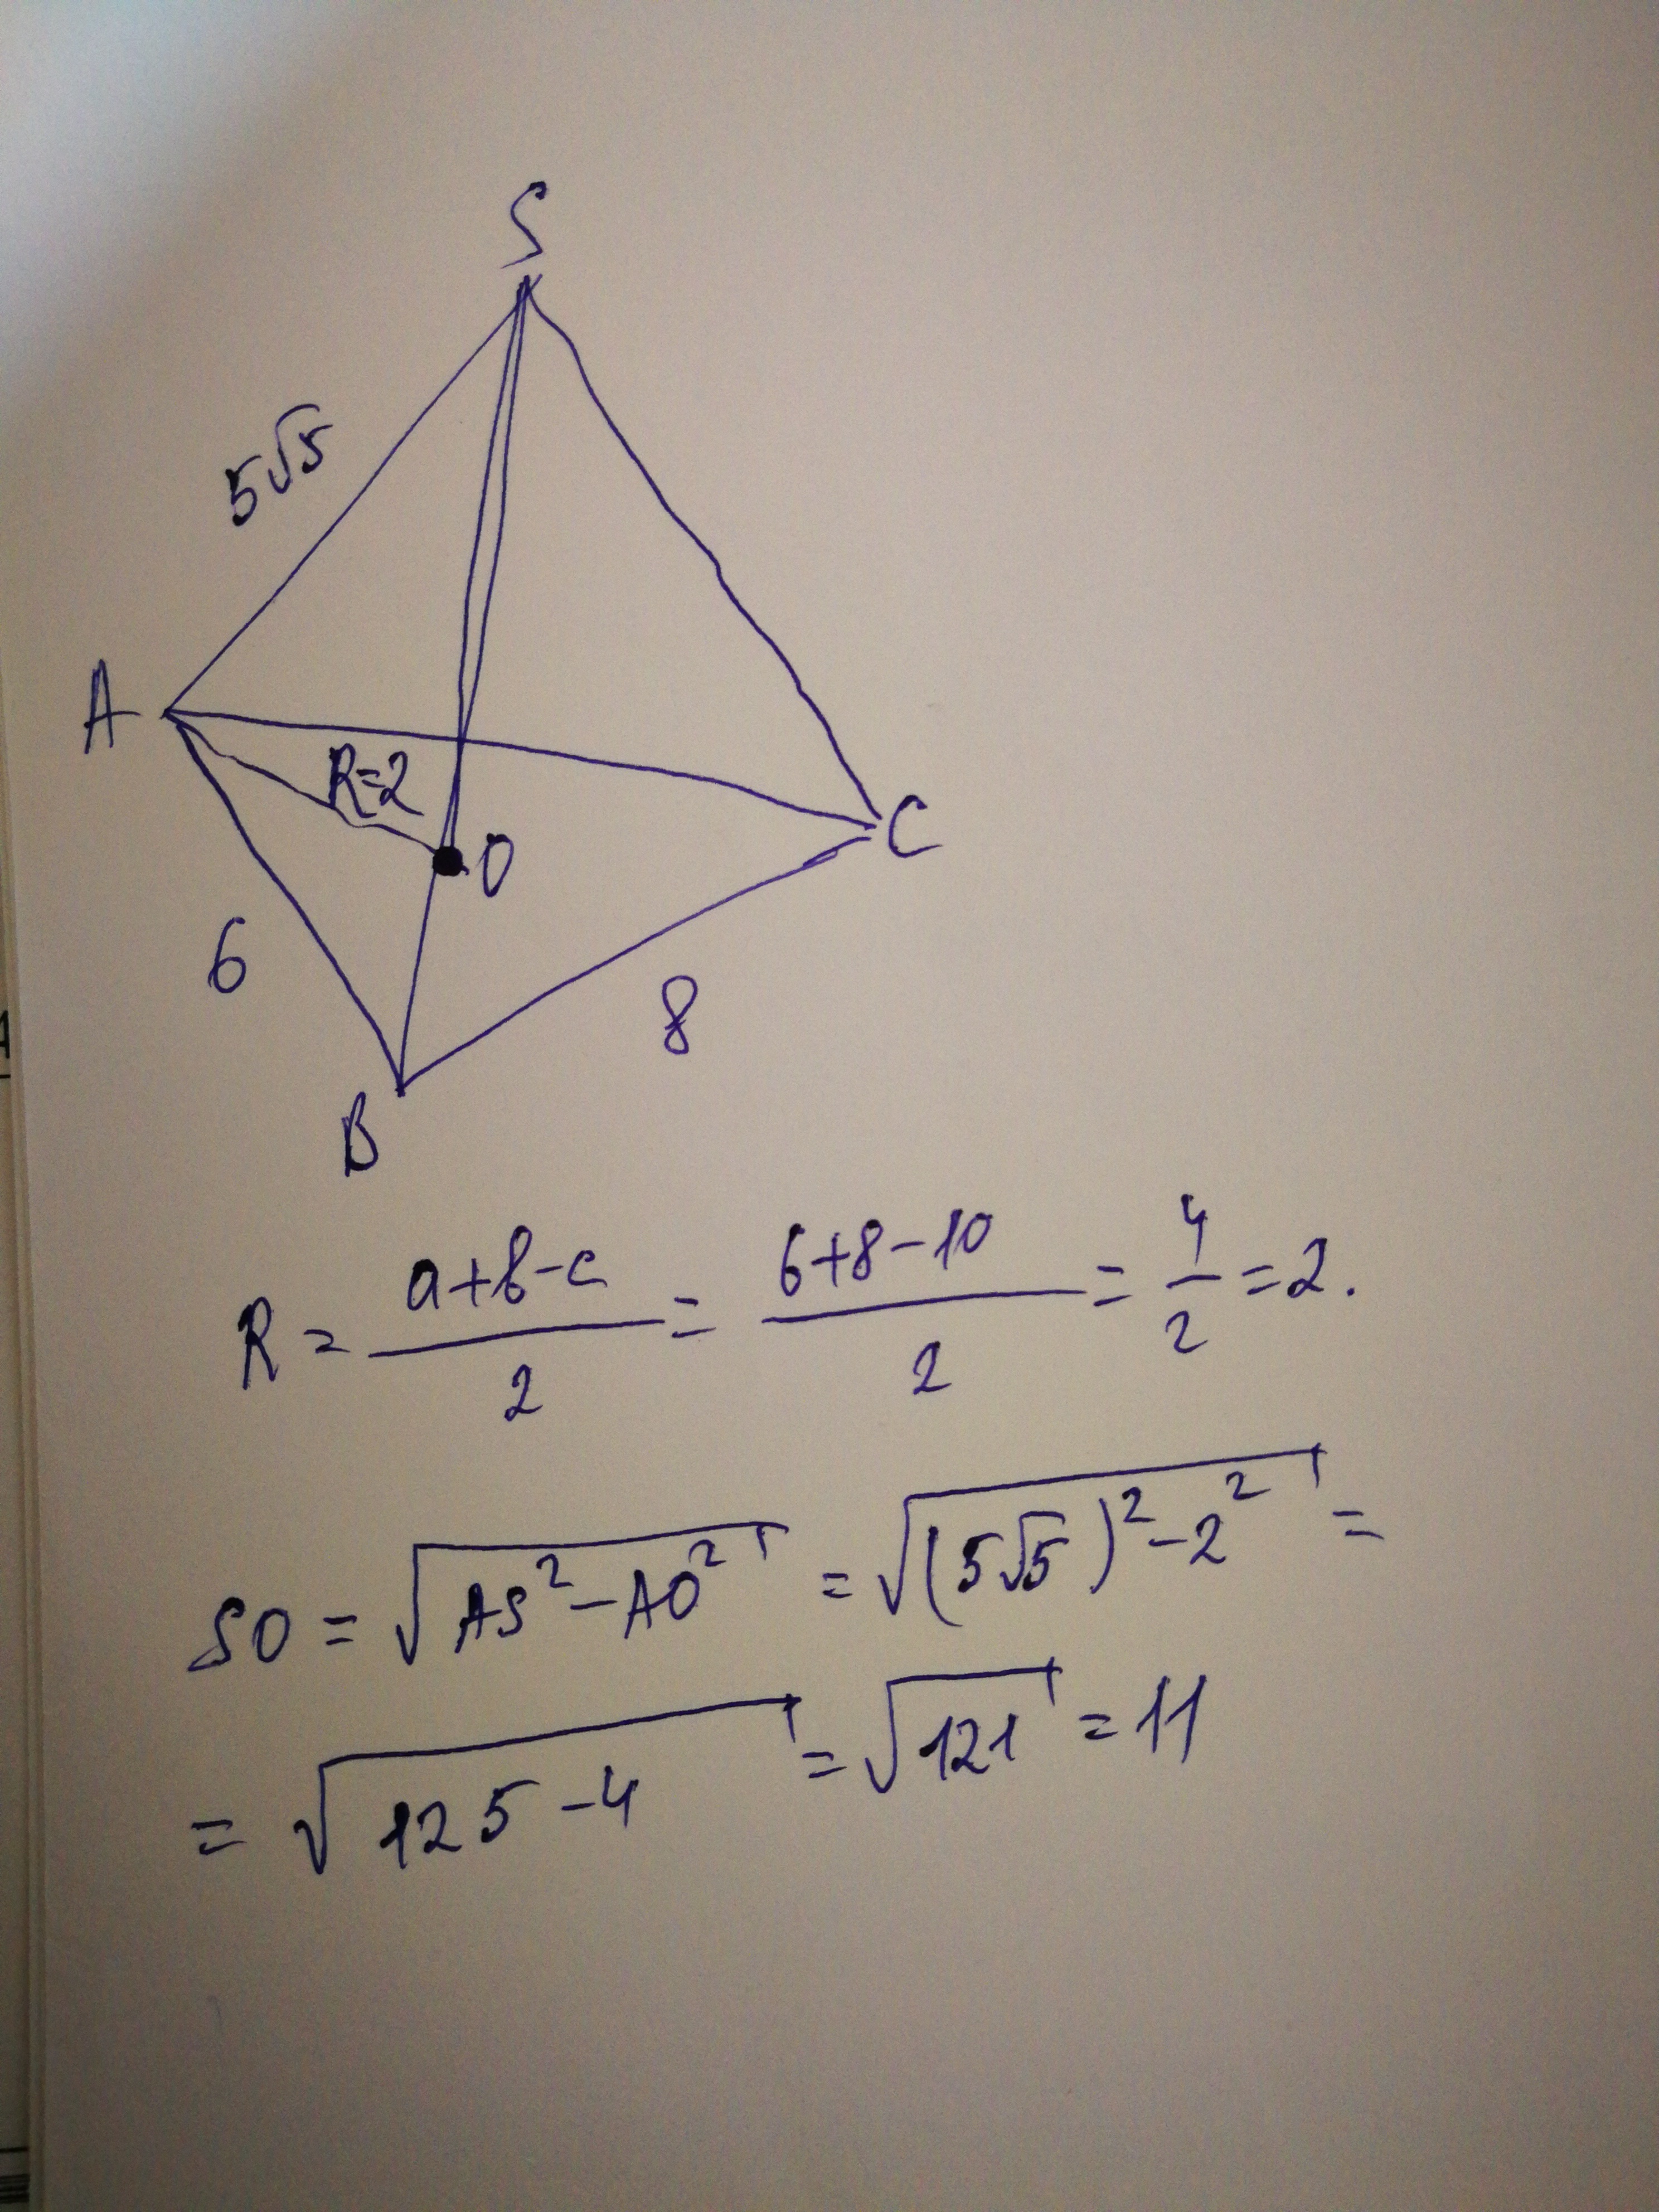 S
5√5
A
R=2
O
C
6
8
B
R = (a+b-c)/2 = (6+8-10)/2 = 4/2 = 2.
SO = √(AS² - AO²) = √((5√5)² - 2²) =
= √(125 - 4) = √121 = 11